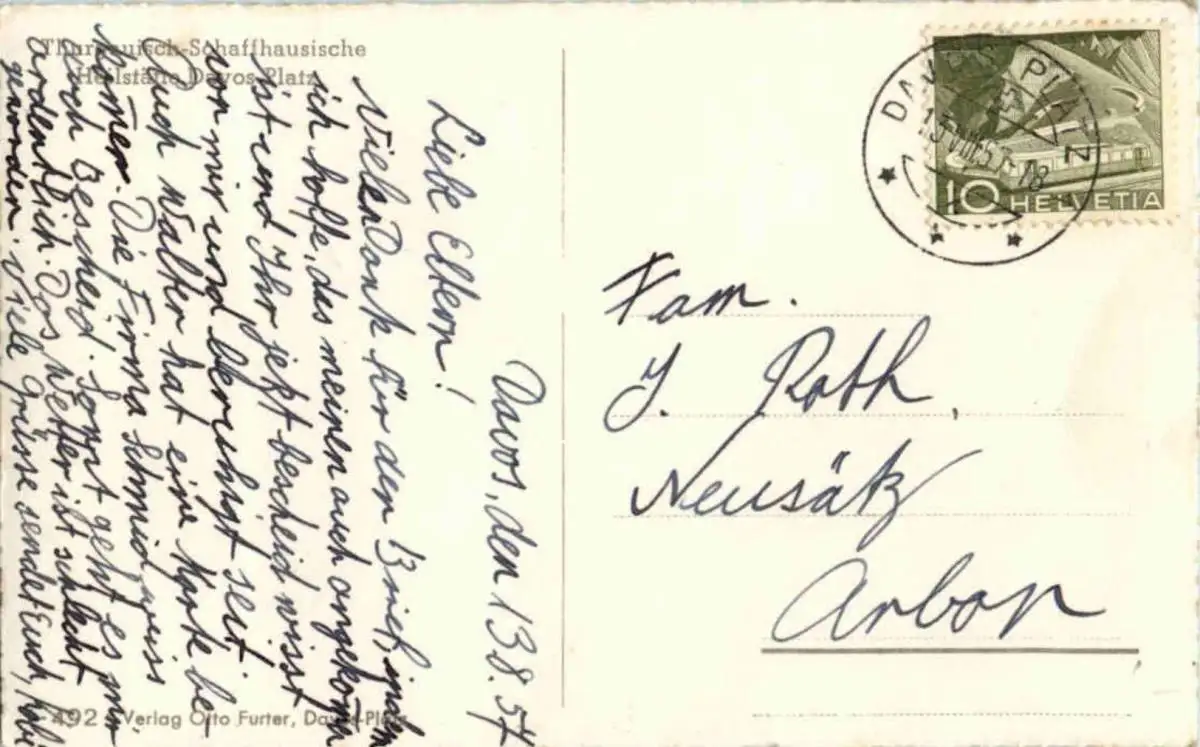 Thurgauisch-Schaffhausische
Heilstätte Davos-Platz
Davos, den 13.8.54
Liebe Eltern!
Vielen Dank für den Brief, indem
ich hoffe, das meinen auch angekomen
ist und Ihr jetzt bescheid wisst
von mir und beruhigt seit.
Auch Walter hat eine Karte be-
kommen. Die Firma Schmid weiss
auch Bescheid. Sonst geht es mir
ordentlich. Das Wetter ist schlecht
geworden. Viele Grüsse sendet Euch,
492 Verlag Otto Furter, Davos-Platz
DAVOS PLATZ
13.VIII.54-18
10 HELVETIA
Fam.
J. Roth
Neusätz
Arbon